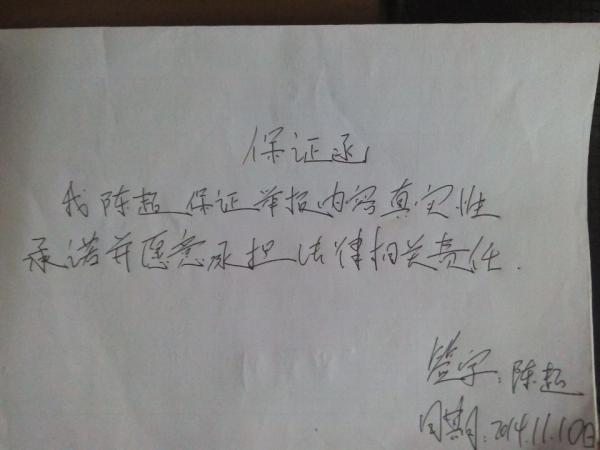 保证函
我陈超保证举报内容真实性
承诺并愿意承担法律相关责任.
签字:陈超
日期:2014.11.10日